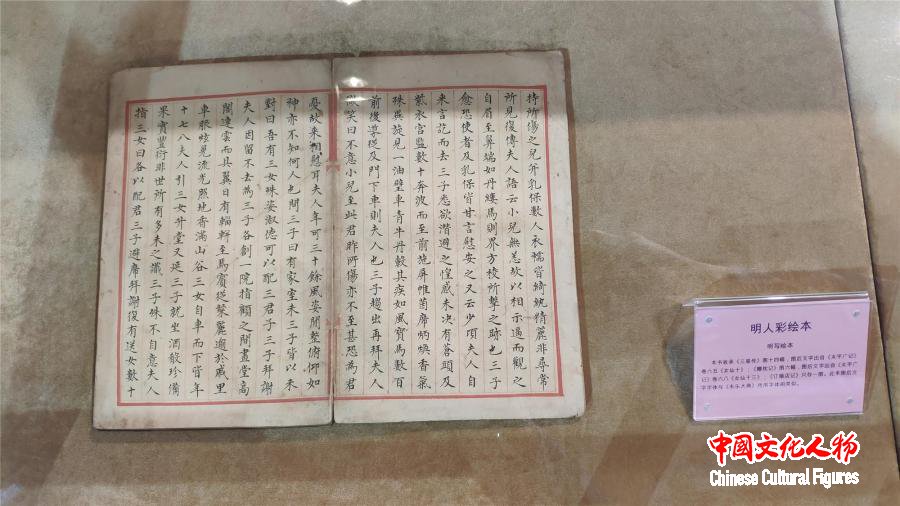 持所傷之兒并乳保數人衣襦皆綺紈精麗非尋常
所見復傳夫人語云小兒無恙故以相示逼而觀之
自眉至鼻端如丹縷焉則界方挍所擊之跡也三子
愈恐使者及乳保皆甘言慰安之又云少頃夫人自
來言訖而去三子悉欲潛避之惶惑未決有蒼頭及
紫衣宫監數十奔波而至前施屏帷茵席炳煥香氣
殊異旋見一油壁車青牛丹轂其疾如風寶馬數百
前後導從及門下車則夫人也三子趨出再拜夫人
微笑曰不意小兒至此君昨所傷亦不至甚恐為君
憂故來相慰耳夫人年可三十餘風姿閒整俯仰如
神亦不知何人也問三子曰有家室未三子皆以未
對曰吾有三女殊姿淑德可以配三君子三子拜謝
夫人因留不去為三子各創一院指顧之間畫堂高
閣連雲而具翼日有輜軿至焉賓從粲麗逾於戚里
車服炫晃流光照地香滿山谷三女自車而下皆年
十七八夫人引三女升堂又延三子就坐酒殽珍備
果實豐衍非世所有多未之識三子殊不自意夫人
指三女曰各以配君三子避席拜謝復有送女數十
明人彩绘本
明写绘本
本书收录《三星传》图十四幅，图后文字出自《太平广记》
卷六五《女仙十》；《游枕记》图六幅，图后文字出自《太平广
记》卷六八《女仙十三》；《订婚店记》只存一图。此书图后文
字字体与《永乐大典》所用字体相类似。
中国文化人物
Chinese Cultural Figures